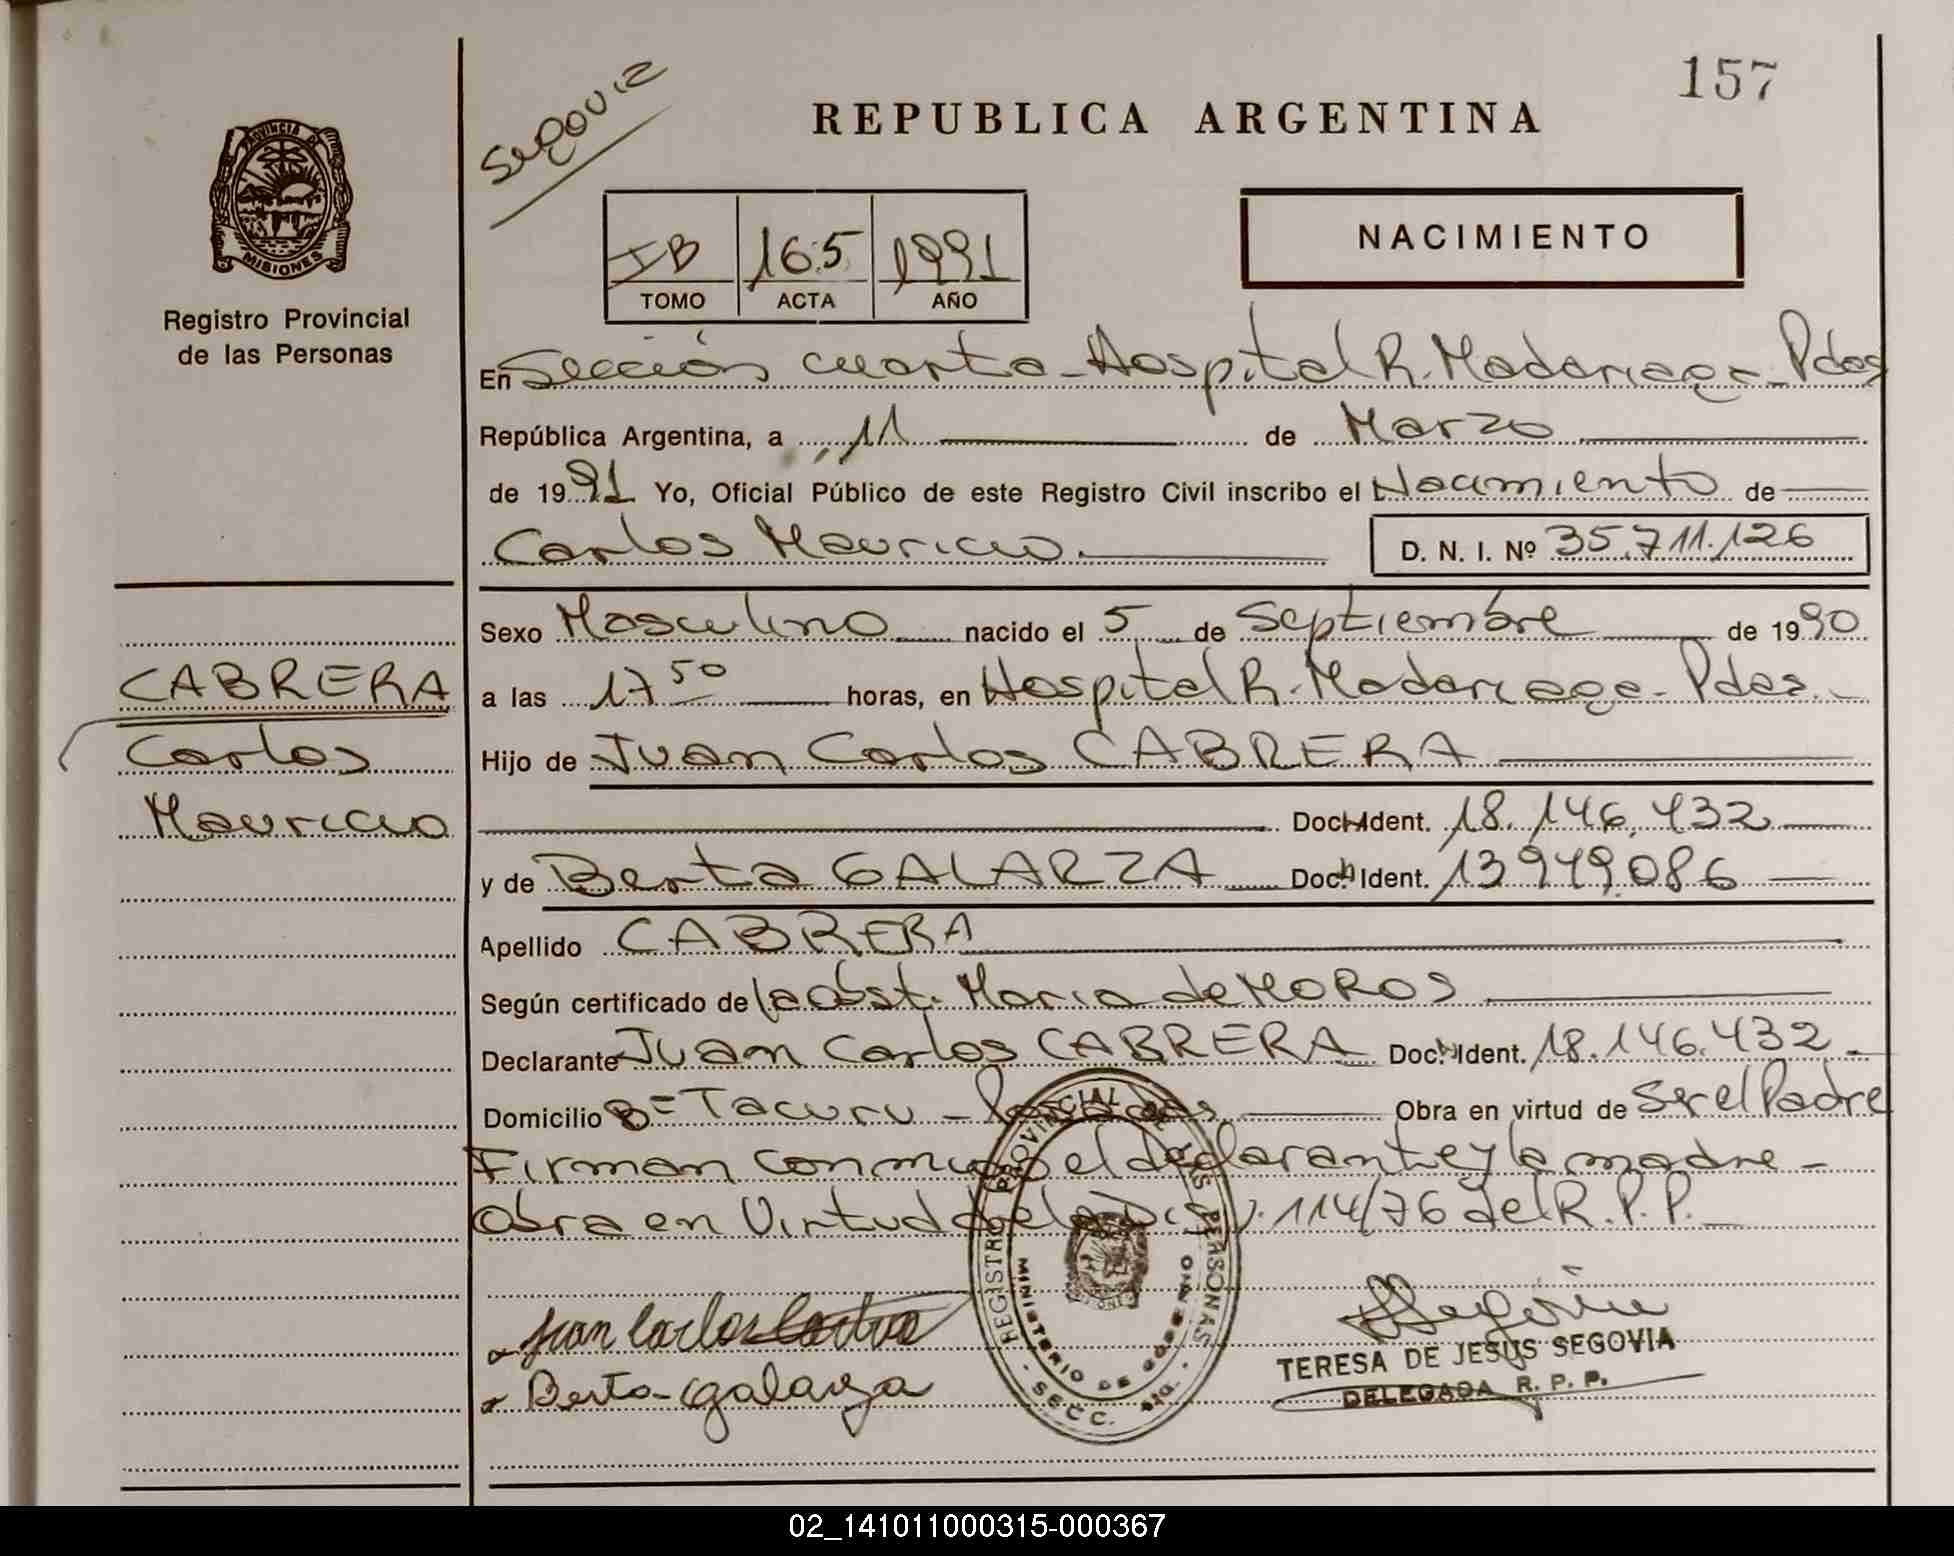 157
Segovia
REPUBLICA ARGENTINA
PROVINCIA DE
MISIONES
Registro Provincial
de las Personas
IB 165 1991
TOMO ACTA AÑO
NACIMIENTO
En Sección cuarta - Hospital R. Madariaga - Pdas
República Argentina, a 11 de Marzo
de 1991 Yo, Oficial Público de este Registro Civil inscribo el Nacimiento de
Carlos Mauricio. D. N. I. Nº 35.711.126
Sexo Masculino nacido el 5 de Septiembre de 1990
a las 17 50 horas, en Hospital R. Madariaga - Pdas.
Hijo de Juan Carlos CABRERA
Doc. Ident. 18.146.432
y de Berta GALARZA Doc. Ident. 13949.086
Apellido CABRERA
Según certificado de la obst. Maria de MOROS
Declarante Juan Carlos CABRERA Doc. Ident. 18.146.432
Domicilio Bº Tacuru - Posadas Obra en virtud de Ser el Padre
Firman conmigo el declarante y la madre -
Obra en Virtud de la 114/76 del R.P.P.
CABRERA
Carlos
Mauricio
Juan Carlos
Berta galarza
REGISTRO PROVINCIAL DE LAS PERSONAS
MINISTERIO DE GOBIERNO
SECC. 4ta.
MISIONES
Segovia
TERESA DE JESUS SEGOVIA
DELEGADA R. P. P.
02_141011000315-000367